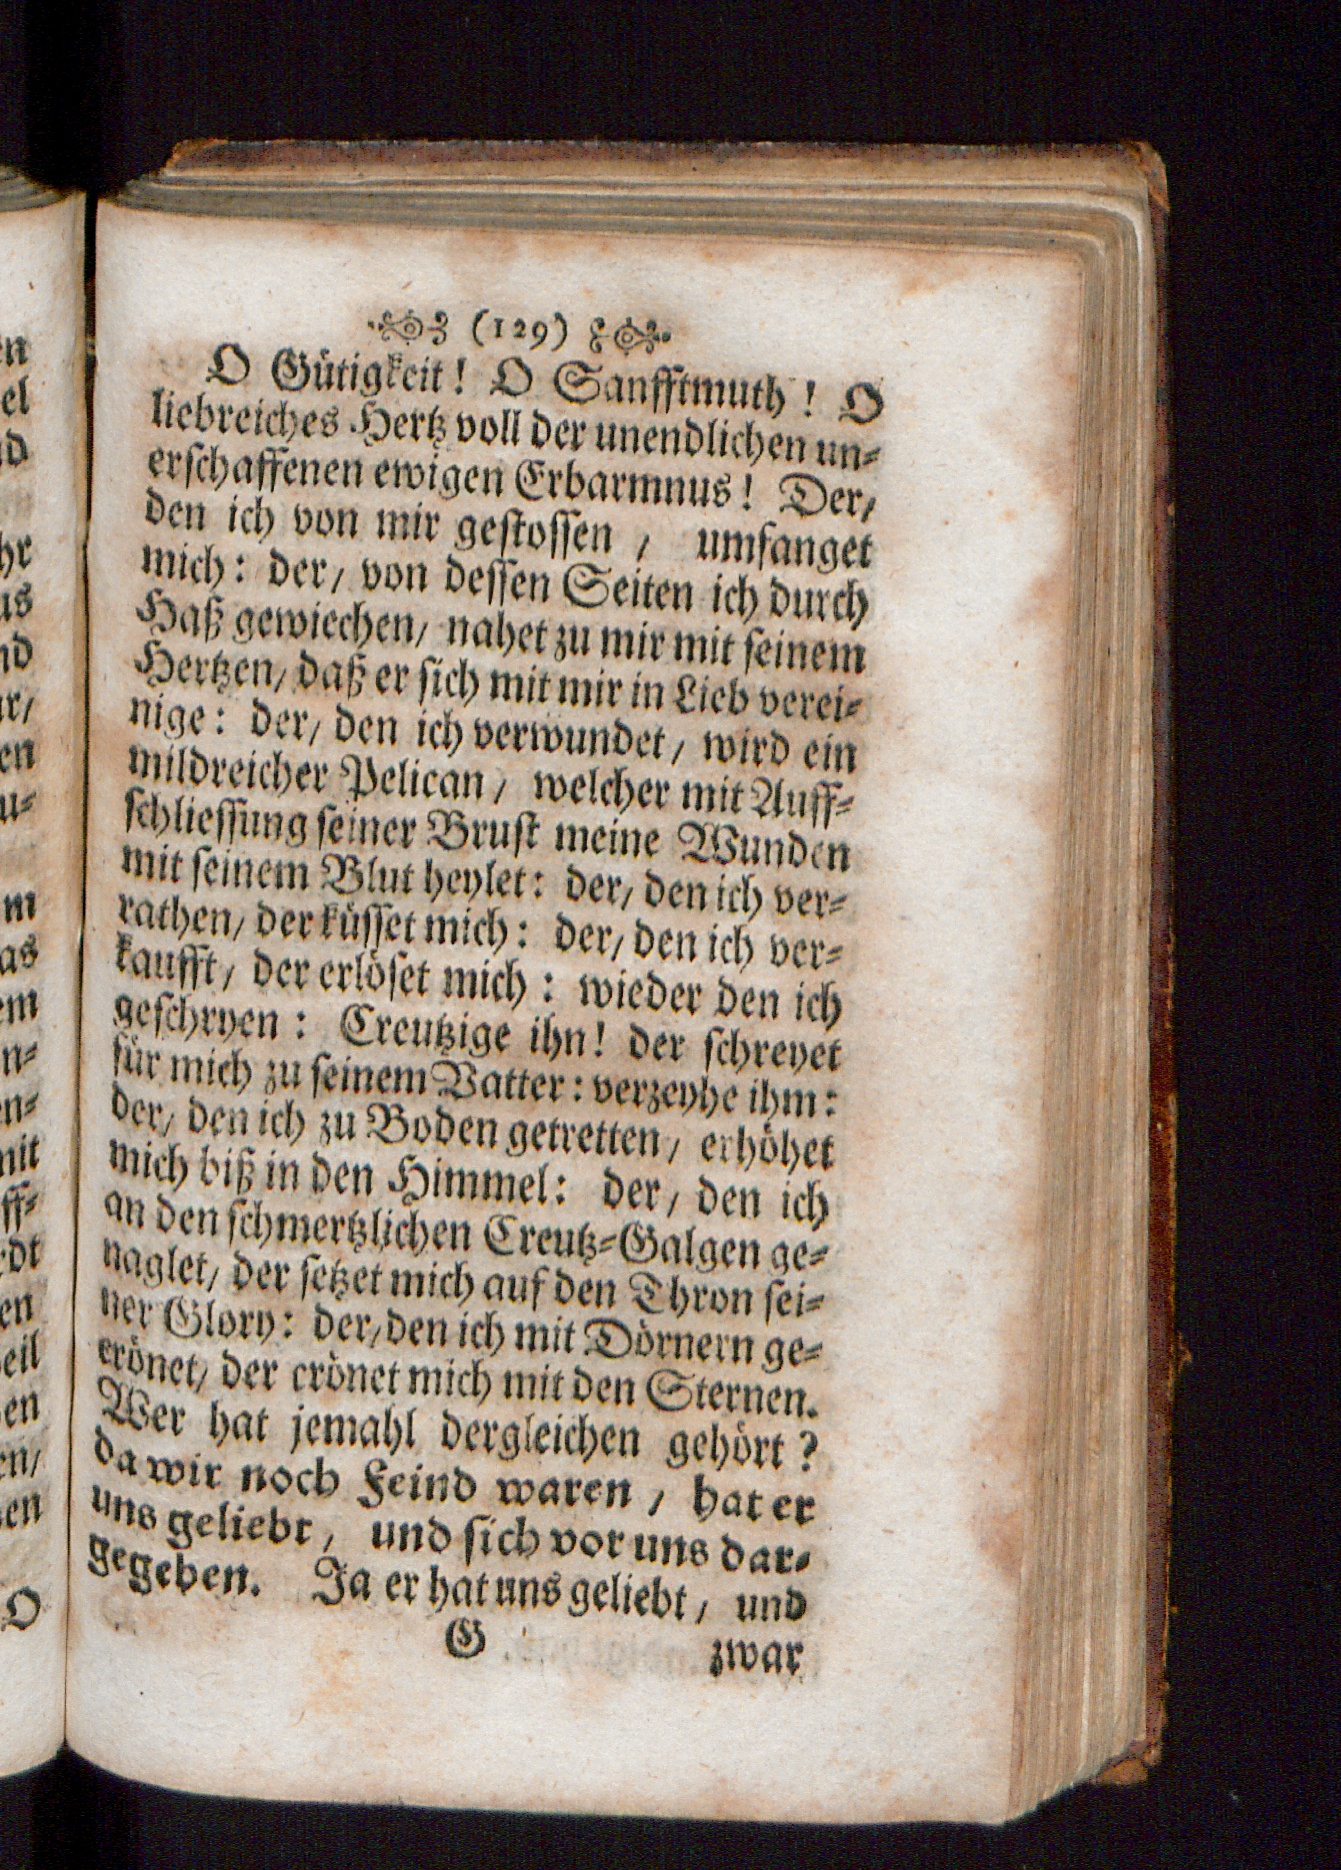 (129)
O Gütigkeit! O Sanfftmuth! O
liebreiches Hertz voll der unendlichen un-
erschaffenen ewigen Erbarmnus! Der/
den ich von mir gestossen / umfanget
mich: der/ von dessen Seiten ich durch
Haß gewiechen/ nahet zu mir mit seinem
Hertzen/ daß er sich mit mir in Lieb verei-
nige: der/ den ich verwundet/ wird ein
mildreicher Pelican/ welcher mit Auff-
schliessung seiner Brust meine Wunden
mit seinem Blut heylet: der/ den ich ver-
rathen/ der küsset mich: der/ den ich ver-
kaufft/ der erlöset mich: wieder den ich
geschryen: Creutzige ihn! der schreyet
für mich zu seinem Vatter: verzeyhe ihm:
der/ den ich zu Boden getretten/ erhöhet
mich biß in den Himmel: der/ den ich
an den schmertzlichen Creutz-Galgen ge-
naglet/ der setzet mich auf den Thron sei-
ner Glory: der/ den ich mit Dörnern ge-
crönet/ der crönet mich mit den Sternen.
Wer hat jemahl dergleichen gehört?
da wir noch Feind waren / hat er
uns geliebt, und sich vor uns dar-
gegeben. Ja er hat uns geliebt/ und
G zwar